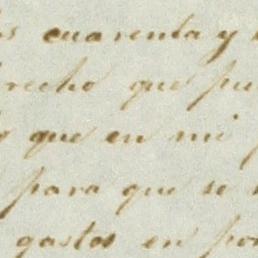 os cuarenta y
recho que pu
que en mi
para que se
gastos en por